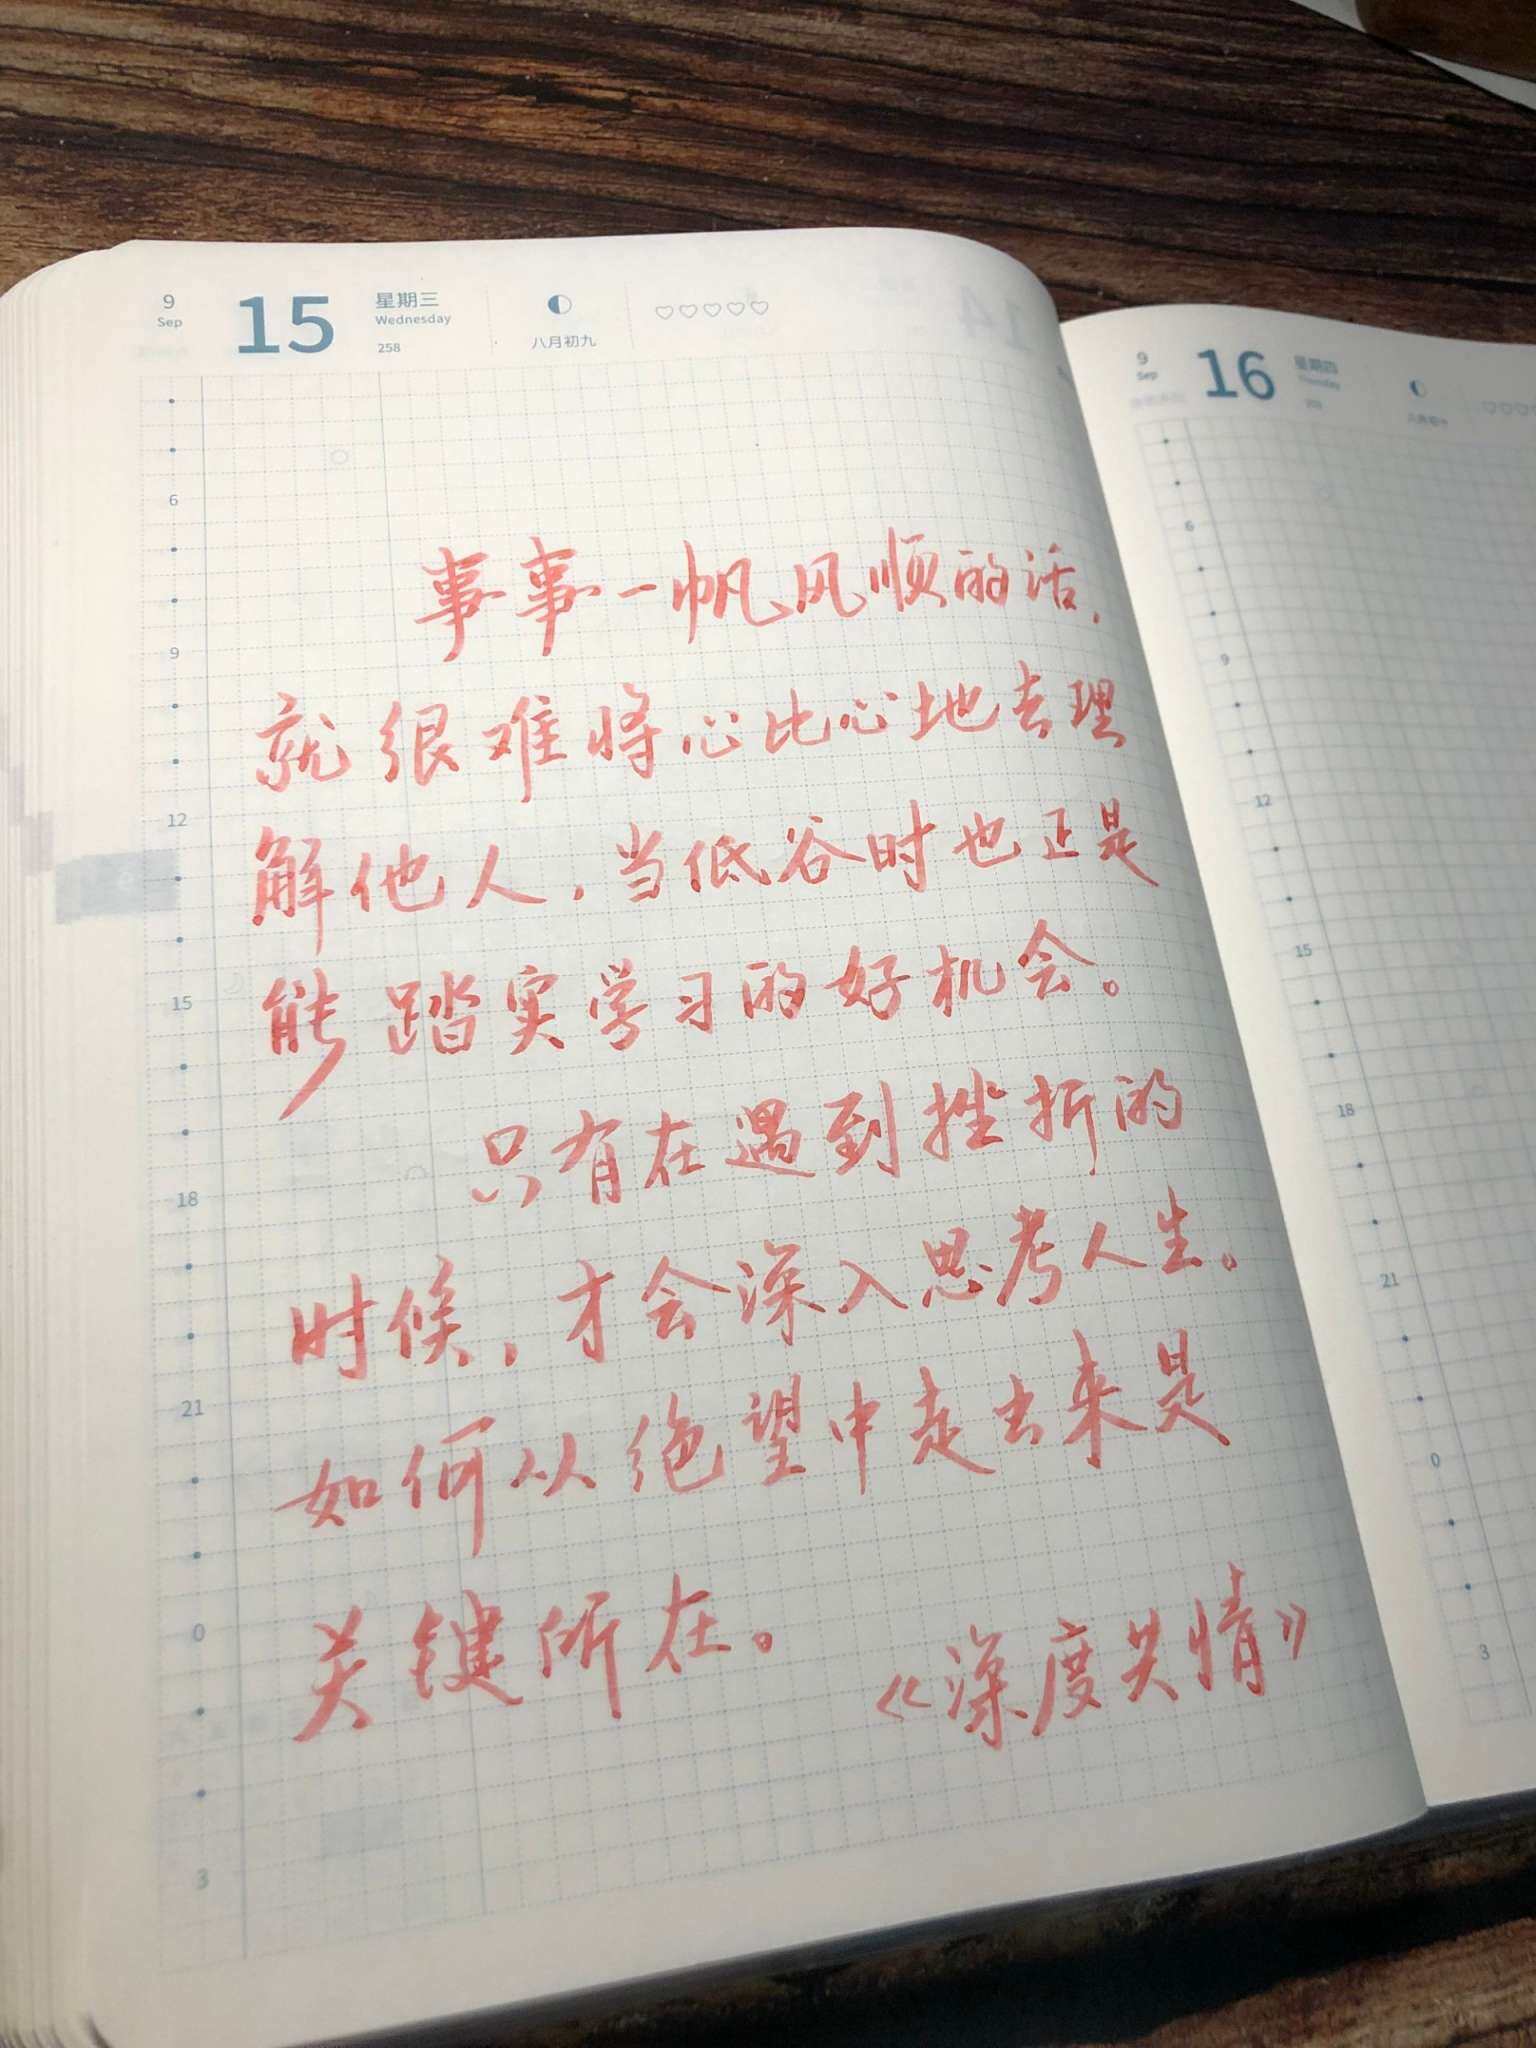 9
Sep
15
星期三
Wednesday
258
八月初九
6
9
12
15
18
21
0
3
事事一帆风顺的话,
就很难将心比心地去理
解他人,当低谷时也正是
能踏实学习的好机会。
只有在遇到挫折的
时候,才会深入思考人生。
如何从绝望中走出来是
关键所在。
《深度共情》
9
Sep
16
星期四
Thursday
6
9
12
15
18
21
0
3